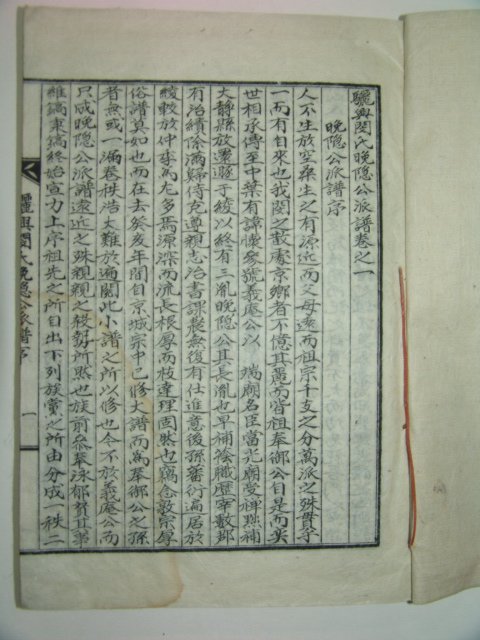 驪興閔氏晚隱公派譜卷之一
晚隱公派譜序
人不生於空桑生之有源近而父母遠而祖宗千支之分萬派之殊貫乎
一而有自來也我閔之散處京鄉者不億其麗而皆祖奉御公自是而奕
世相承傳至中葉有諱懷參號義庵公以 端廟名臣當光廟受禪黜補
大靜縣放還縣于綾以終有三胤晚隱公其長胤也早補蔭職歷宰數郡
有治績除滿歸侍克遵親志治書課農無復有仕進意後孫蕃衍遍居於
綾較於仲季為尤多焉源深而流長根厚而枝達理固然也竊念敦宗厚
俗譜莫如也而在去癸亥年間自京城宗中已修大譜而為奉御公之孫
者無或一漏卷秩浩大難於遍閱此小譜之所以修也今不於義庵公而
只成晚隱公派譜遠近之殊親親之殺勢所然也族前參奉泳郁贊其事
維鎬東鎬終始宣力上序祖先之所自出下列族黨之所由分成一秩二
驪興閔氏晚隱公派譜序
一